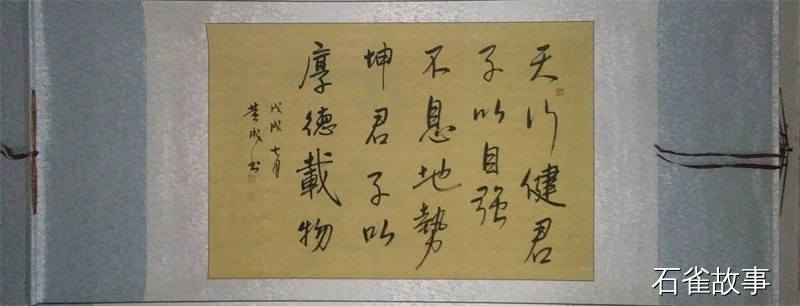 天行健君
子以自强
不息地勢
坤君子以
厚德載物
戊戌七月
黄成书
石雀故事